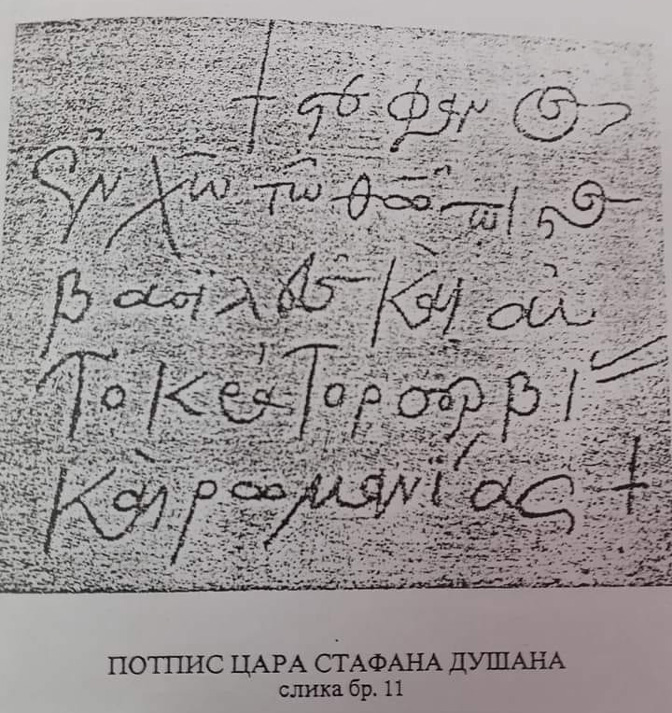 + στέφαν
ἐν Χῶ τῶ θῶ πι
βασϊλευς Καὶ αὐ
ΤοΚράΤορ σερβΙ
Καὶ ρωμανΐας +
ПОТПИС ЦАРА СТАФАНА ДУШАНА
слика бр. 11